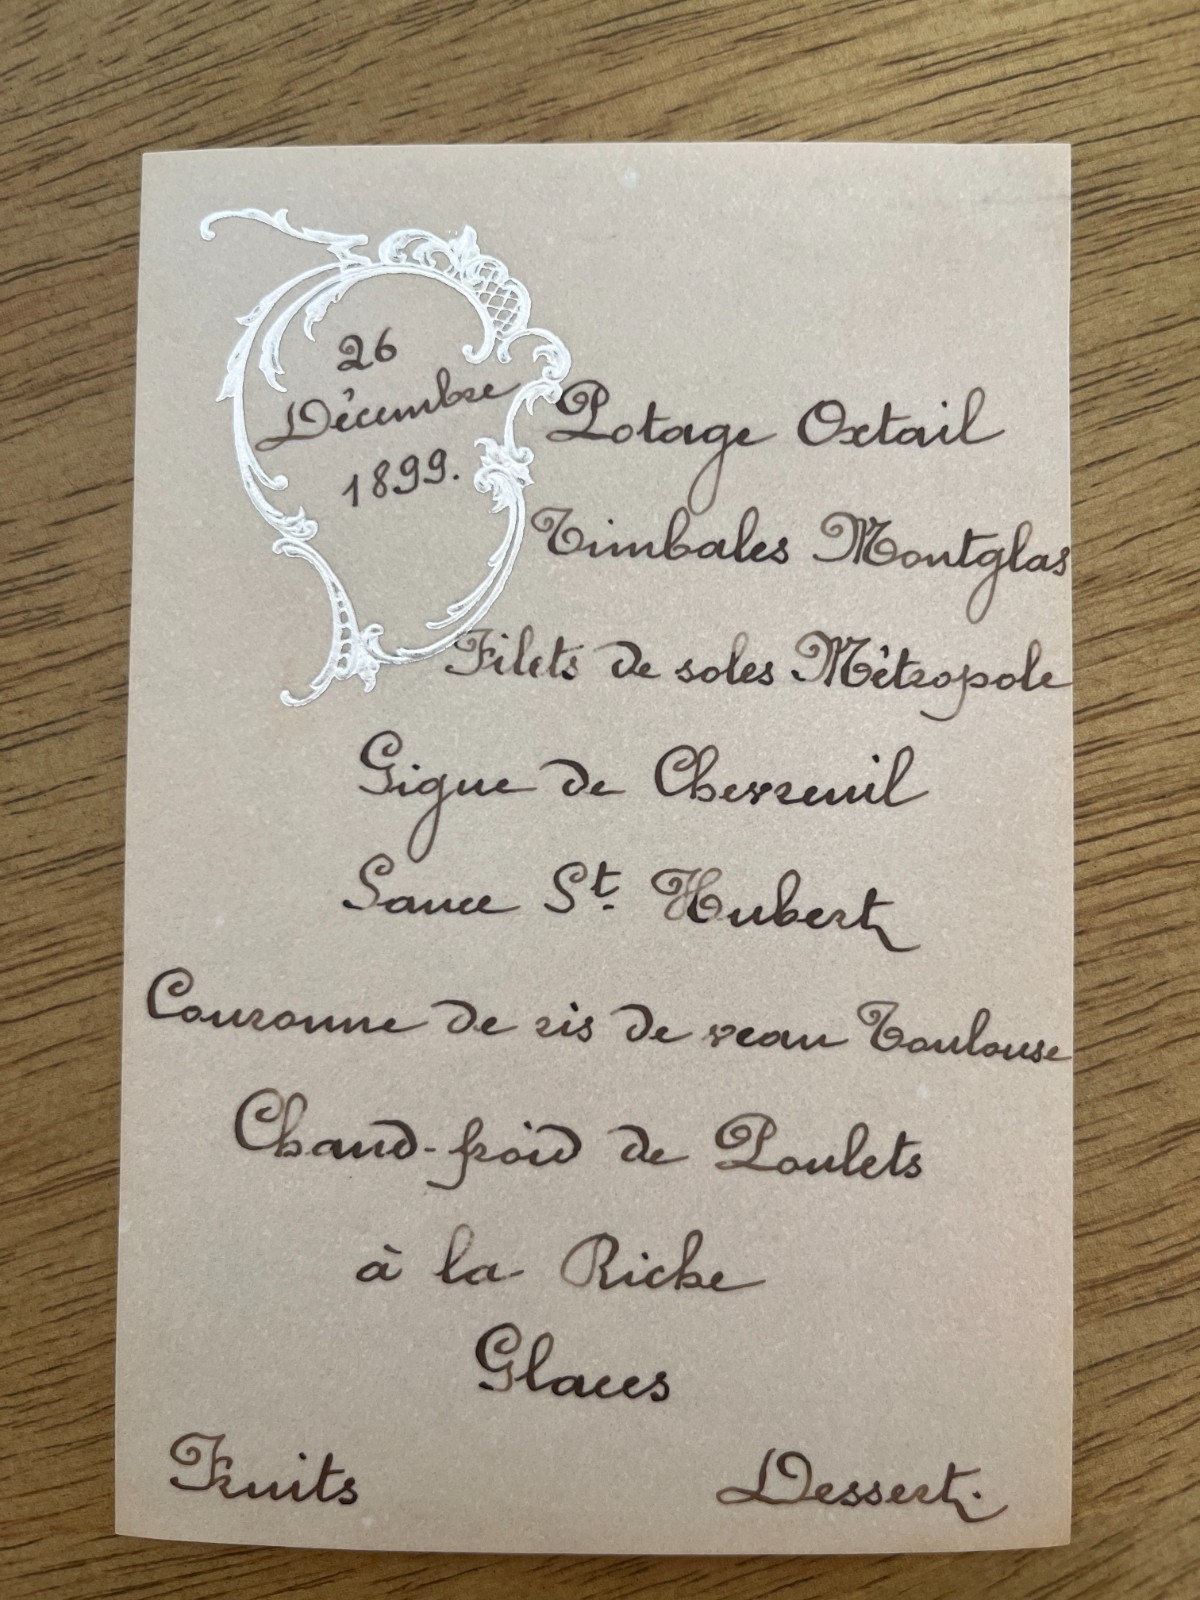 26
Décembre
1899.
Potage Oxtail
Timbales Montglas
Filets de soles Métropole
Gigue de Chevreuil
Sauce St. Hubert
Couronne de ris de veau Toulouse
Chaud-froid de Poulets
à la Riche
Glaces
Fruits Dessert.